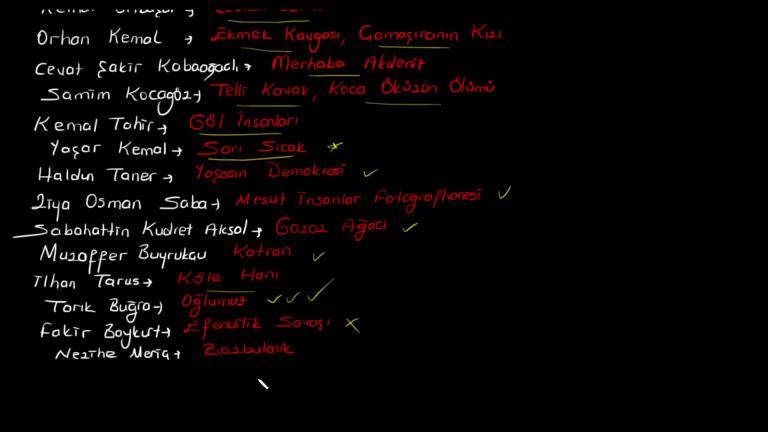 Orhan Kemal → Ekmek Kavgası, Çamaşırcının Kızı
Cevat Şakir Kabaağaçlı → Merhaba Akdeniz
Samim Kocagöz → Telli Kavak, Koca Öküzün Ölümü
Kemal Tahir → Göl İnsanları
Yaşar Kemal → Sarı Sıcak
Haldun Taner → Yaşasın Demokrasi
Ziya Osman Saba → Mesut İnsanlar Fotoğraphanesi
Sabahattin Kudret Aksal → Gazoz Ağacı
Muzaffer Buyrukçu Katran
İlhan Tarus → Köle Hanı
Tarık Buğra → Oğlumuz
Fakir Baykurt → Efendilik Savaşı
Nezihe Meriç → Bozbulanık